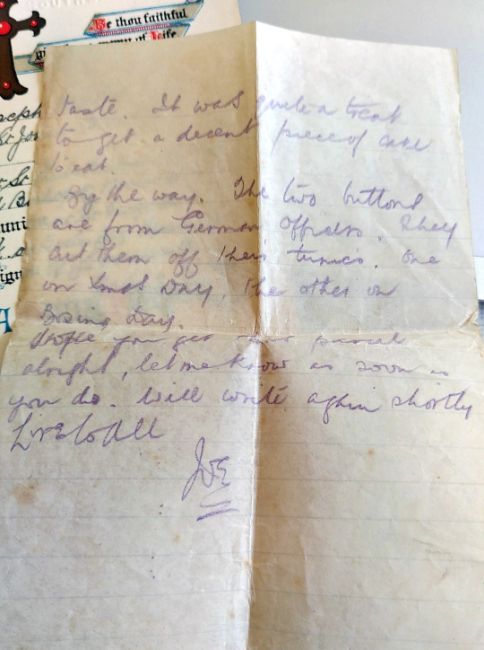 Be thou faithful
of Life
taste. It was quite a treat
to get a decent piece of cake
to eat.
By the way. The two buttons
are from German Officers. They
cut them off their tunics. One
on Xmas Day, the other on
Boxing Day.
Hope you get this parcel
alright, let me know as soon as
you do. Will write again shortly
Love to All
Joe